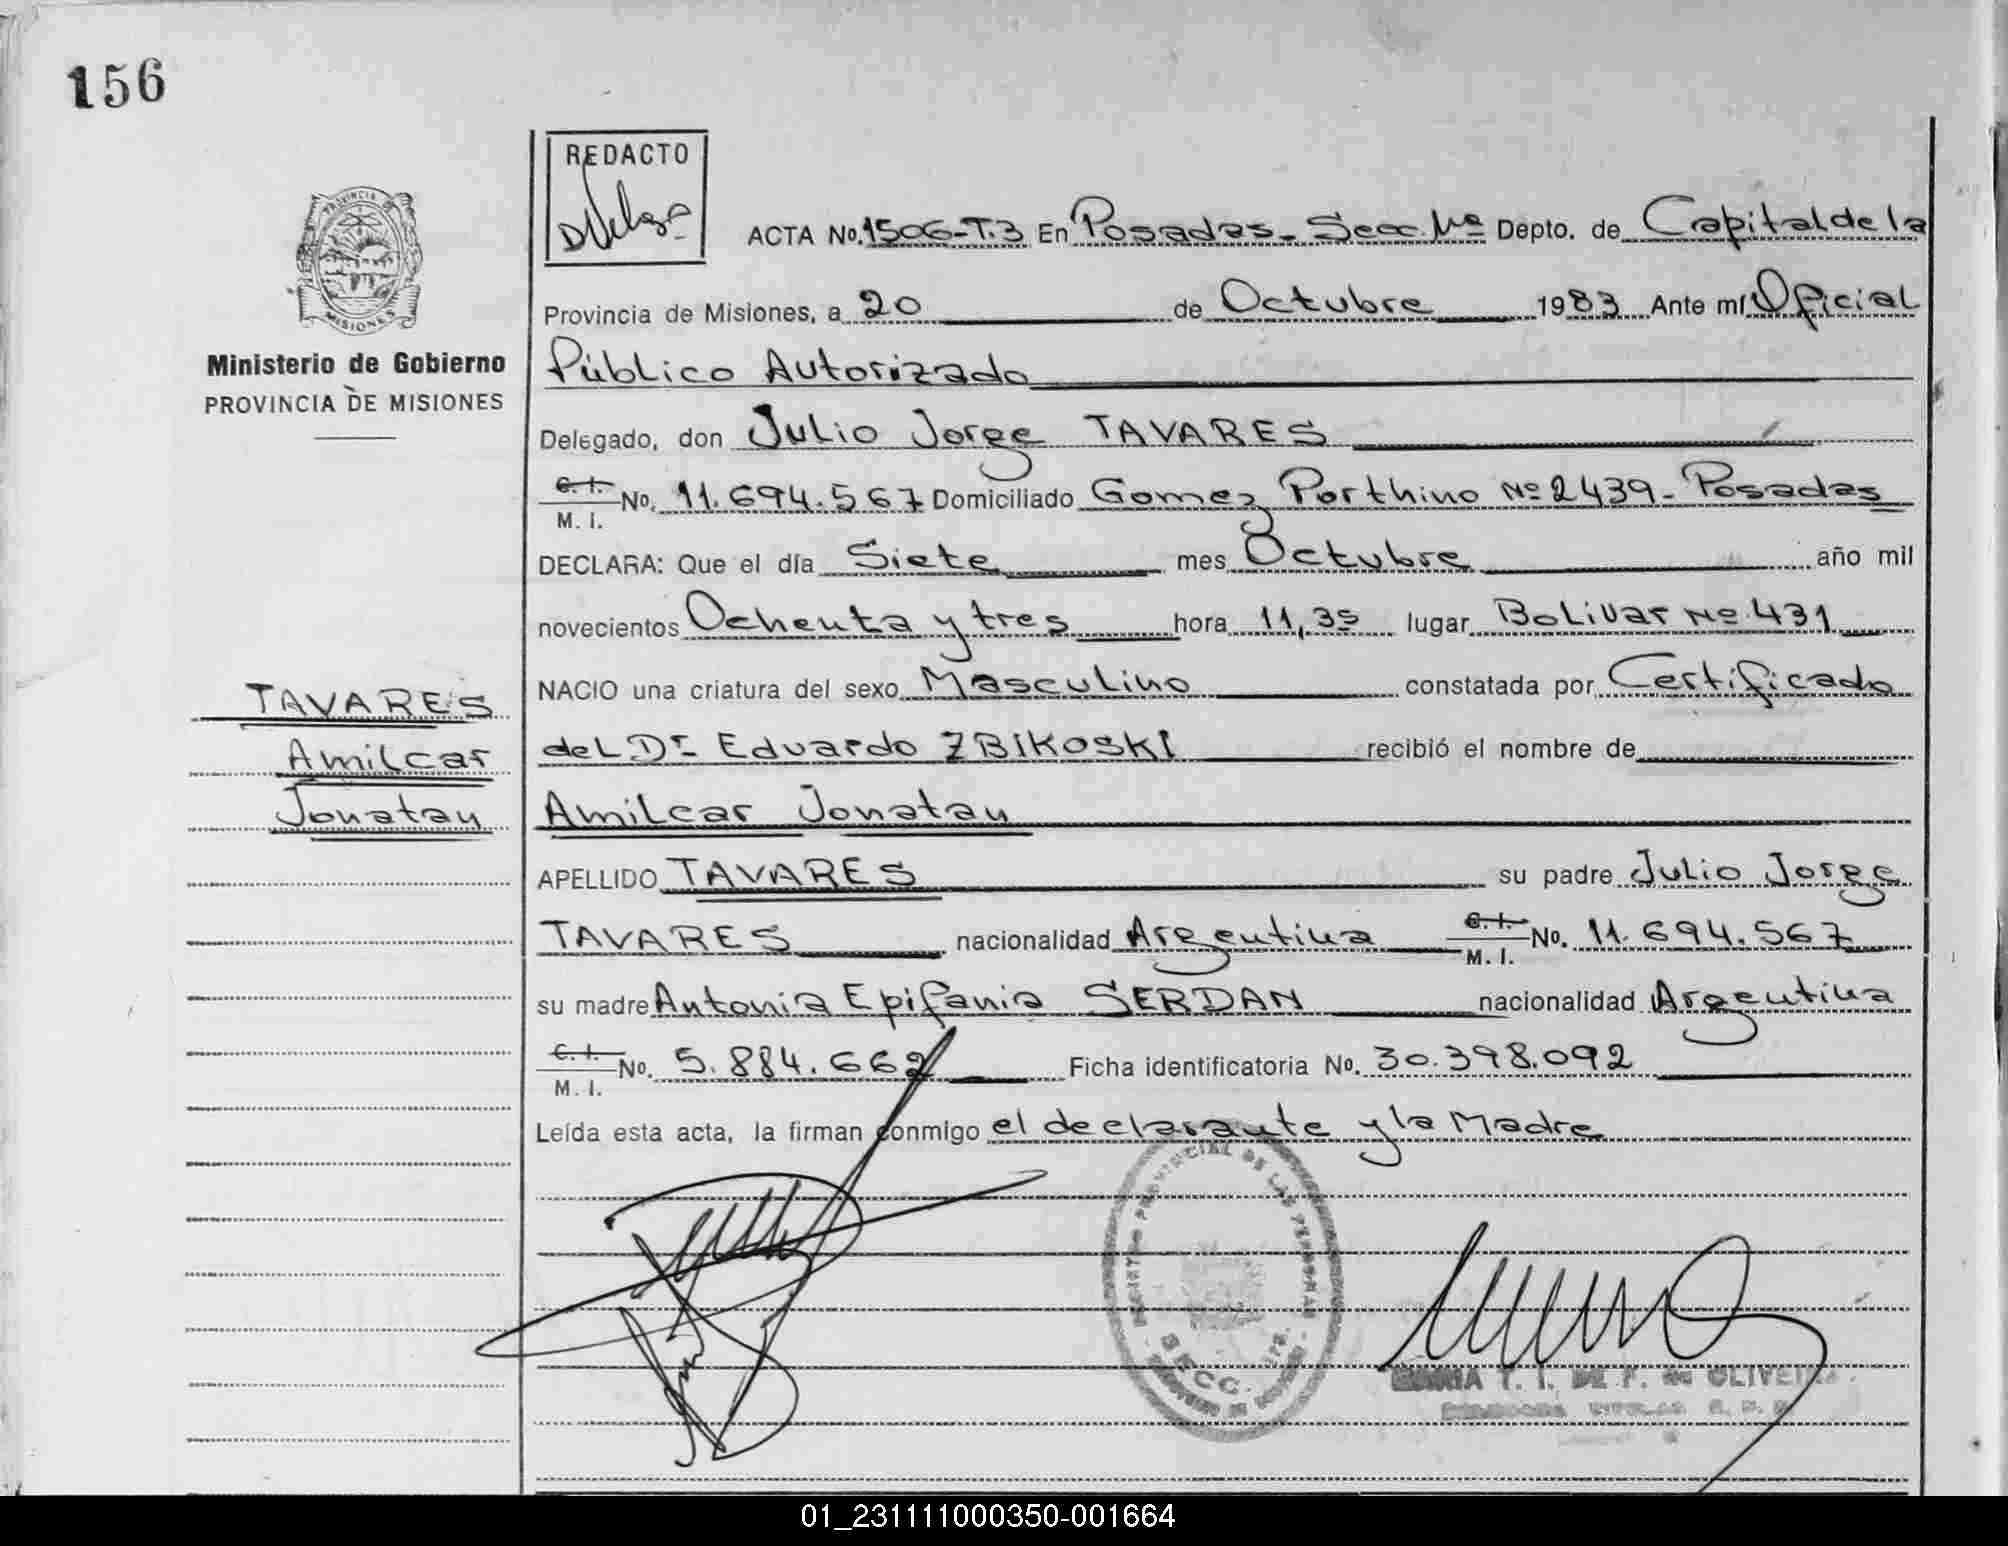 156
REDACTO
PROVINCIA DE
MISIONES
Ministerio de Gobierno
PROVINCIA DE MISIONES
ACTA No. 1506-T.3 En Posadas - Secc. Depto. de Capital de la
Provincia de Misiones, a 20 de Octubre 1983 Ante mí Oficial
Público Autorizado
Delegado, don Julio Jorge TAVARES
C. I.
M. I. No. 11.694.567 Domiciliado Gomez Porthino Nº 2439 - Posadas
DECLARA: Que el día Siete mes Octubre año mil
novecientos Ochenta y tres hora 11,35 lugar Bolivar Nº 431
NACIO una criatura del sexo Masculino constatada por Certificado
del Dr Eduardo ZBIKOSKI recibió el nombre de
Amilcar Jonatan
APELLIDO TAVARES su padre Julio Jorge
TAVARES nacionalidad Argentina C. I. M. I. No. 11.694.567
su madre Antonia Epifania SERDAN nacionalidad Argentina
C. I.
M. I. No. 5.884.662 Ficha identificatoria No. 30.398.092
Leída esta acta, la firman conmigo el declarante y la Madre
TAVARES
Amilcar
Jonatan
PROVINCIAL DE LAS PERSONAS
SECC.
MARIA T. I. DE F. de OLIVEIRA
01_231111000350-001664